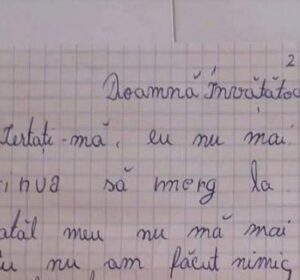 2
Doamnă Învățătoa
Iertați-mă, eu nu mai
tinua să merg la
atăl meu nu mă mai
eu nu am făcut nimic